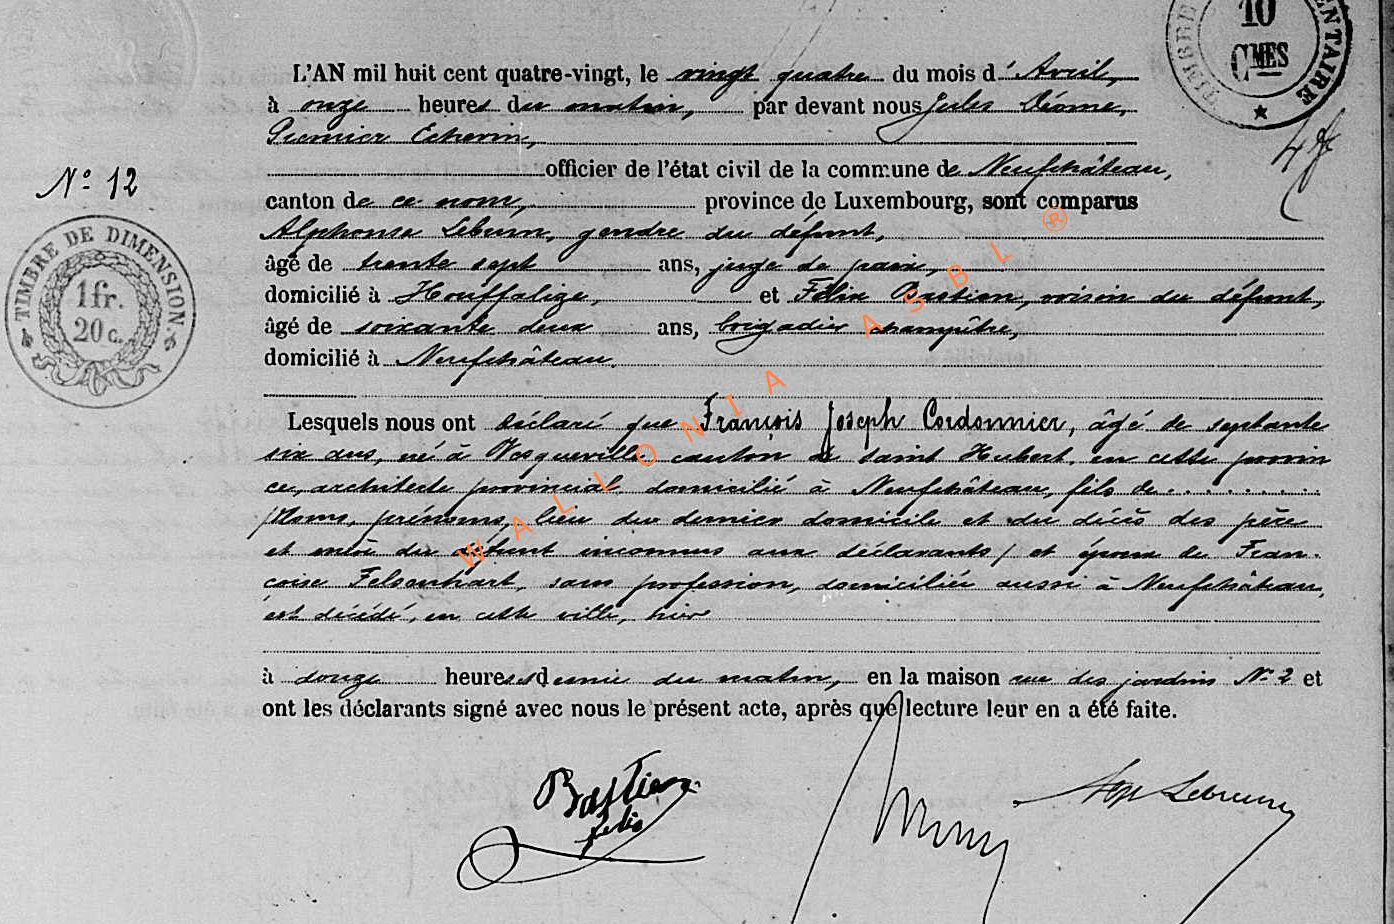 L'AN mil huit cent quatre-vingt, le vingt quatre du mois d'Avril,
à onze heures du matin, par devant nous Jules
Premier Echevin,
officier de l'état civil de la commune de Neufchâteau,
N° 12
canton de ce nom, province de Luxembourg, sont comparus
Alphonse Lebrun, gendre du défunt,
âgé de trente sept ans, juge de paix,
domicilié à Houffalize, et Félix Bastien, voisin du défunt,
âgé de soixante deux ans, brigadier champêtre,
domicilié à Neufchâteau.
Lesquels nous ont déclaré que François Joseph Cordonnier, âgé de septante
six ans, né à Vesqueville canton de saint Hubert, en cette provin
ce, architecte provincial, domicilié à Neufchâteau, fils de . . . . . . . . .
/Noms, prénoms, lieu du dernier domicile et du décès des père
et mère du défunt inconnus aux déclarants/ et époux de Fran-
coise Felsenhart, sans profession, domiciliée aussi à Neufchâteau,
est décédé, en cette ville, hier
à douze heures et demie du matin, en la maison rue des jardins N° 2 et
ont les déclarants signé avec nous le présent acte, après que lecture leur en a été faite.
Bastien
felix
Alp Lebrun
TIMBRE DE DIMENSION
1 fr.
20 c.
TIMBRE
10
CMES
WALLONIA ASBL ®